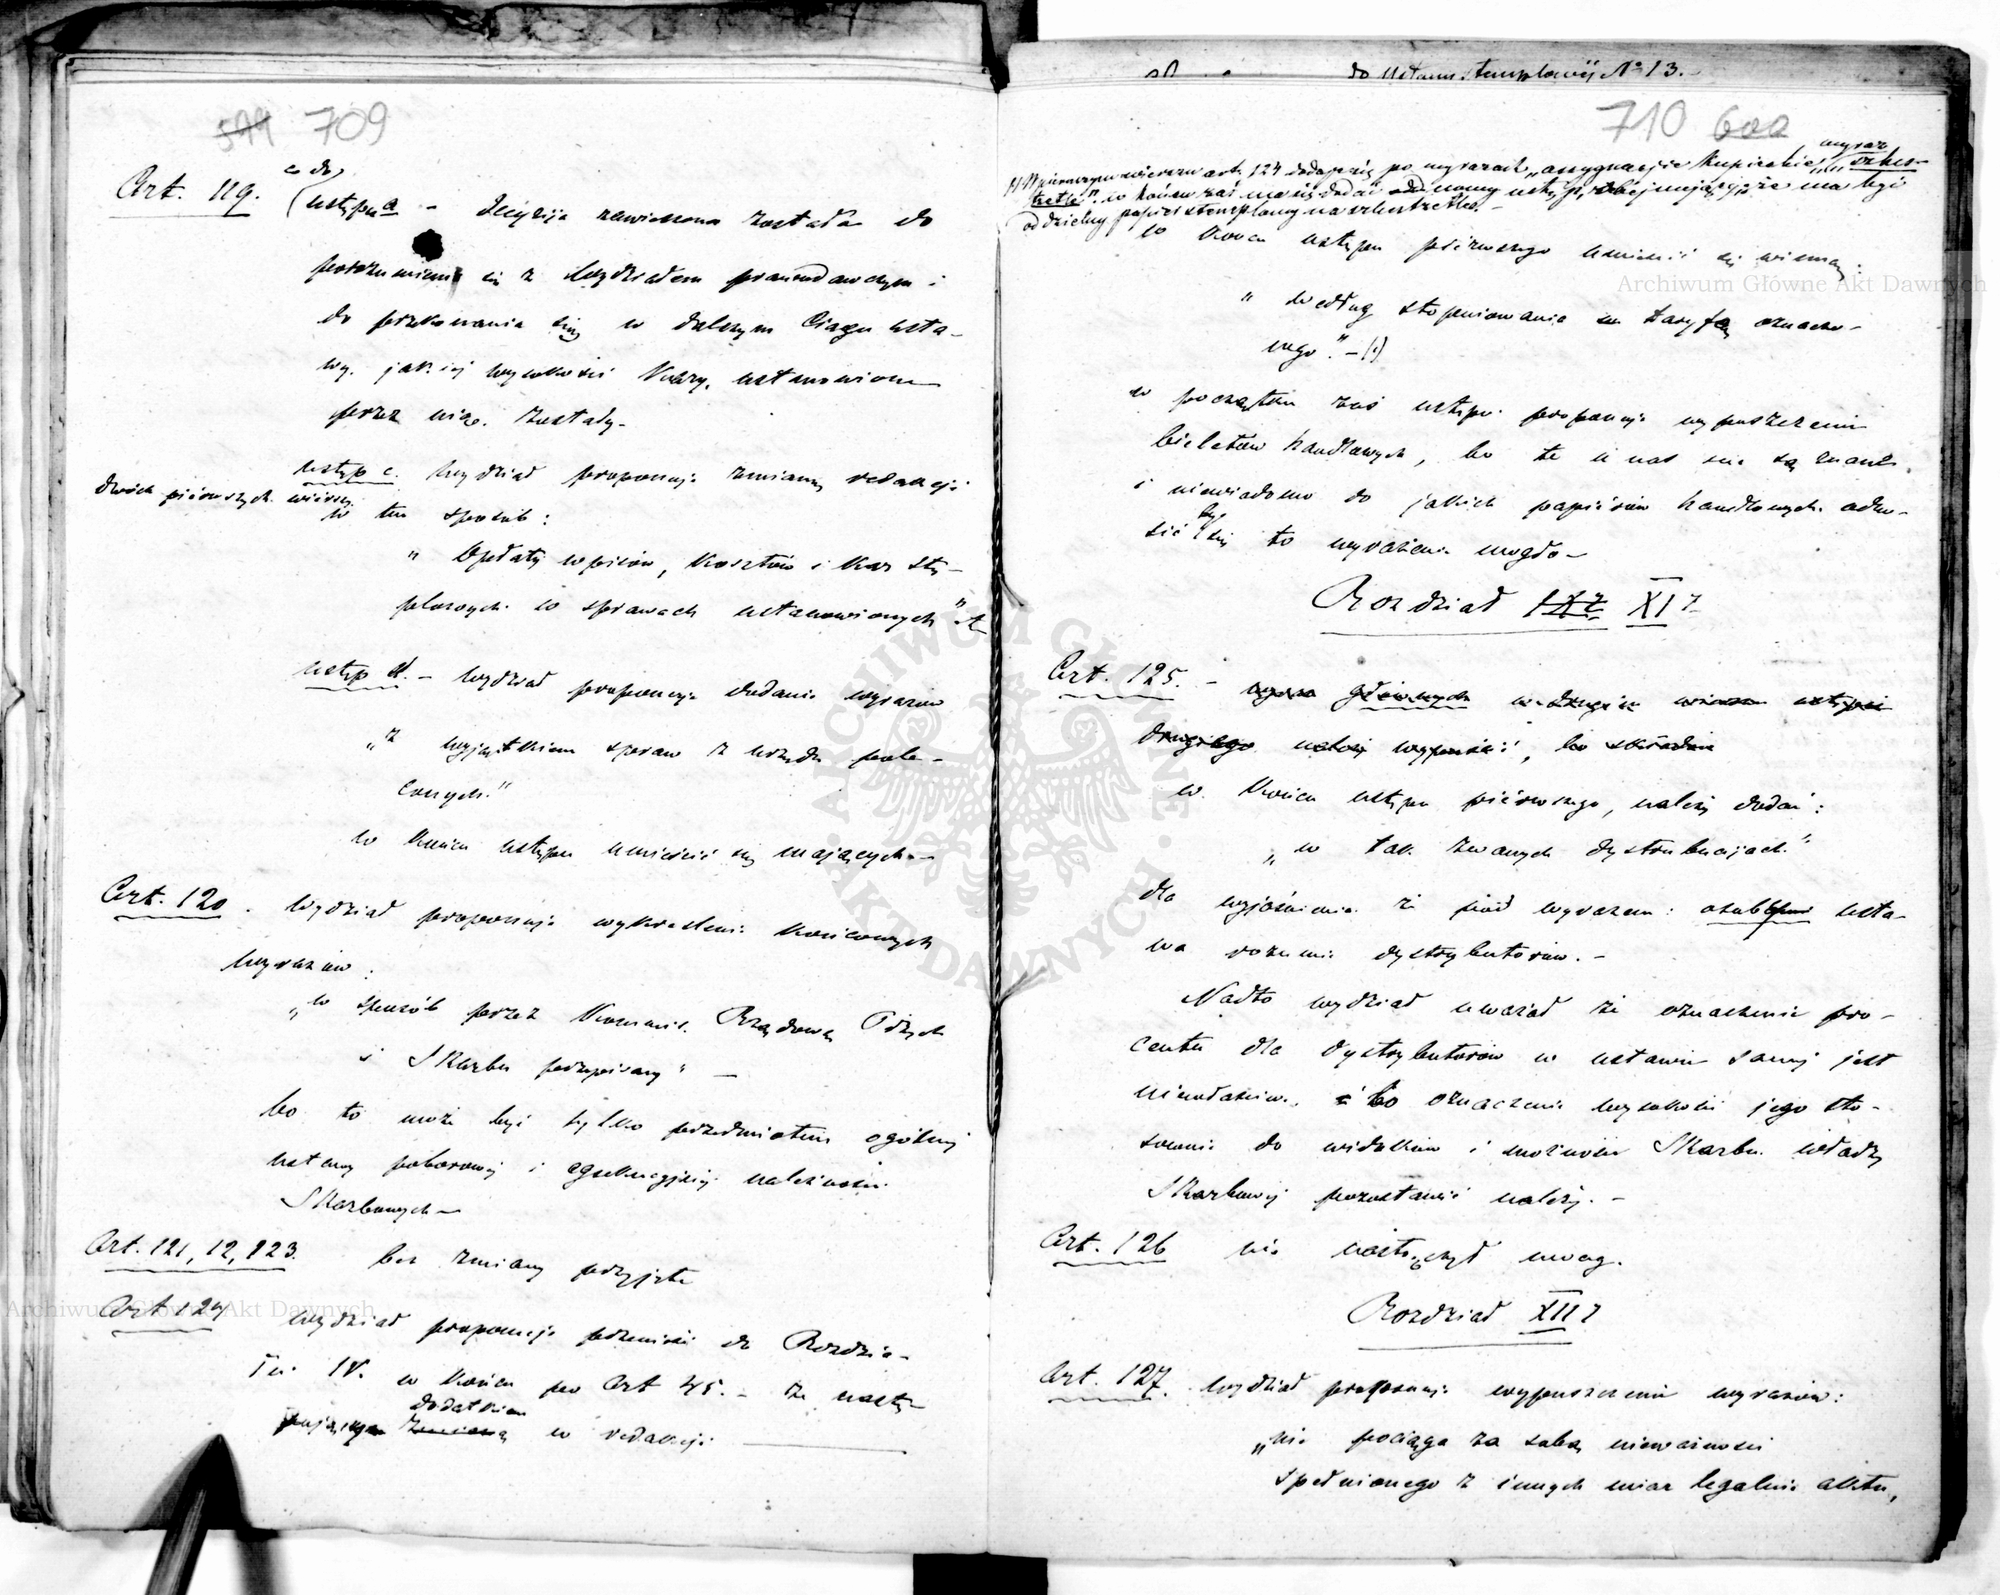 599 709
co do
Art. 119. (ustępu a – decyzija zawieszona została do
porozumienia się z Wydziałem prawodawczym i
do przekonania się w dalszym ciągu usta-
wy, jakiej wysokości kary, ustanowione
przez nią zostały.
ustęp c. Wydział proponuje zmianę redakcji
dwóch piérwszych wierszy
w ten sposób:
„ Opłaty wpisów, kosztów i kar stę-
plowych w sprawach ustanowionych"
ustęp d. – Wydział proponuje dodanie wyrazów
„z wyjątkiem spraw z urzędu pole-
conych."
w końcu ustępu umieścić się mających –
Art. 120. Wydział proponuje wykreślenie końcowych
wyrazów:
„w sposób przez Kommis. Rządową Pdych
i Skarbu przepisany" –
bo to może być tylko przedmiotem ogólnej
ustawy poborowej i egzekucyjnej należności
Skarbowych –
Art. 121, 12, 123. bez zmiany przyjęte
Art 124 Wydział proponuje przenieść do Rozdzia-
łu IV. w końcu po Art 45. – za nastę-
dodatkiem
pującym zmianą w redakcji
do Ustawy stemplowéj No 13. –
710 600
wyraz
W pierwszym wierszu art. 124 dodaje się po wyrazach „assygnacyje kupieckie" „szkus-
tretki". w końcu zaś ma się dodać nowy ustęp, obejmujący, że ma być
oddzielny papier stemplowy na szkustretki. –
w końcu ustępu piérwszego umieścić się winno:
„ według stopniowania w taryfie oznaczo-
nego." – (1)
w początku zaś ustępu proponuje wypuszczenie
biletów handlowych, bo te u nas nie są znane,
i niewiadomo do jakich papiérów handlowych odno-
by
sić się to wyrażenie mogło –
Rozdział XI
Art. 125. – wyraz głównych w drugim wierszu ustępu
drugiego należy wypuścić, bo składnie
w końcu ustępu piérwszego, należy dodać:
„ w tak zwanych dystrybucyjach"
dla wyjaśnienia że pod wyrazem: osobom usta-
wa rozumie dystrybutorów. –
Nadto wydział uważał że oznaczenie pro-
centu dla dystrybutorów w ustawie samej jest
niewłaściwe, i bo oznaczenie wysokości jego sto-
sownie do widoków i możności Skarbu władzy
Skarbowej pozostawić należy. –
Art. 126 nie nastręczył uwag.
Rozdział XII
Art. 127. Wydział proponuje wypuszczenie wyrazów:
„nie pociąga za sobą nieważności
spełnionego z innych miar legalnie aktu,
Archiwum Główne Akt Dawnych
Archiwum Główne Akt Dawnych
ARCHIWUM GŁÓWNE AKT DAWNYCH